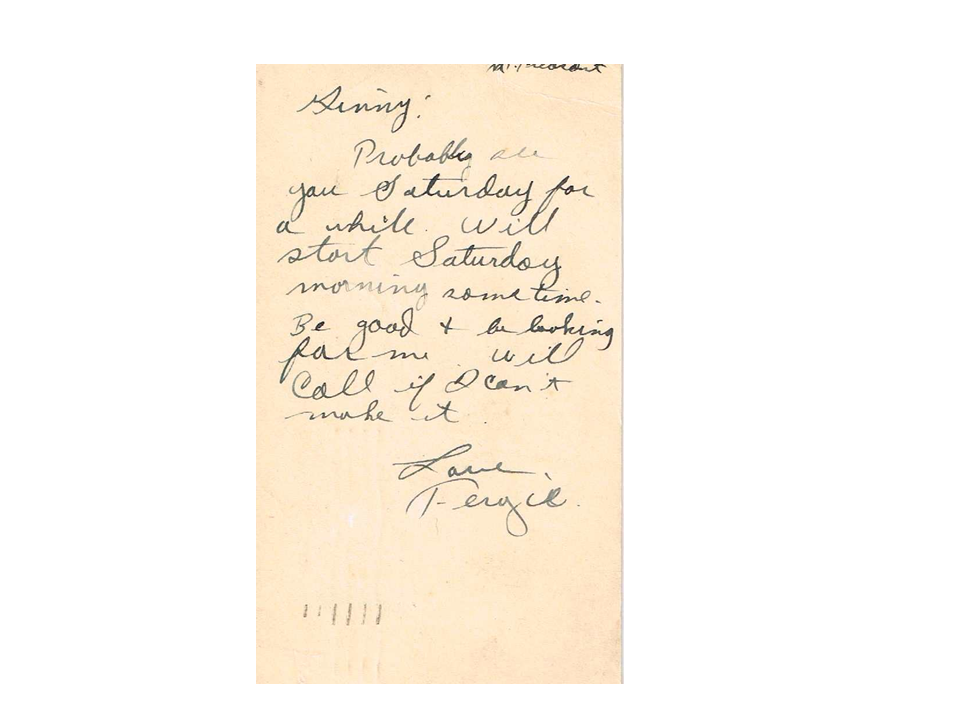 Mt. Pleasant
Ginny:
Probably see
you Saturday for
a while. Will
start Saturday
morning sometime.
Be good + be looking
for me. Will
Call if I can't
make it.
Love,
Fergie.